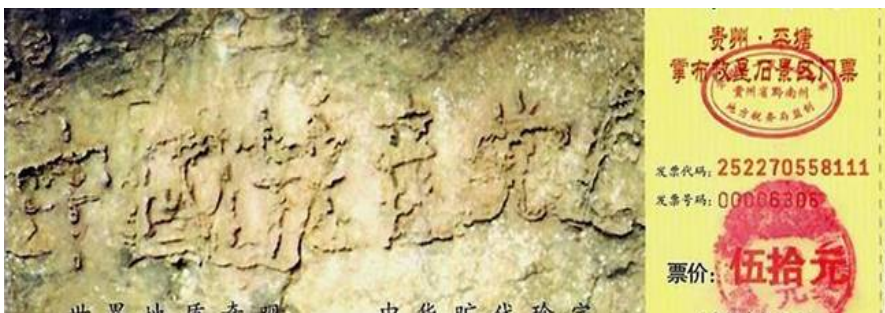 中國共产党亡
世界地质奇观 中华旷代珍宝
贵州·平塘
掌布救星石景区门票
贵州省黔南州
地方税务局监制
发票代码: 252270558111
发票号码: 00006306
票价: 伍拾元